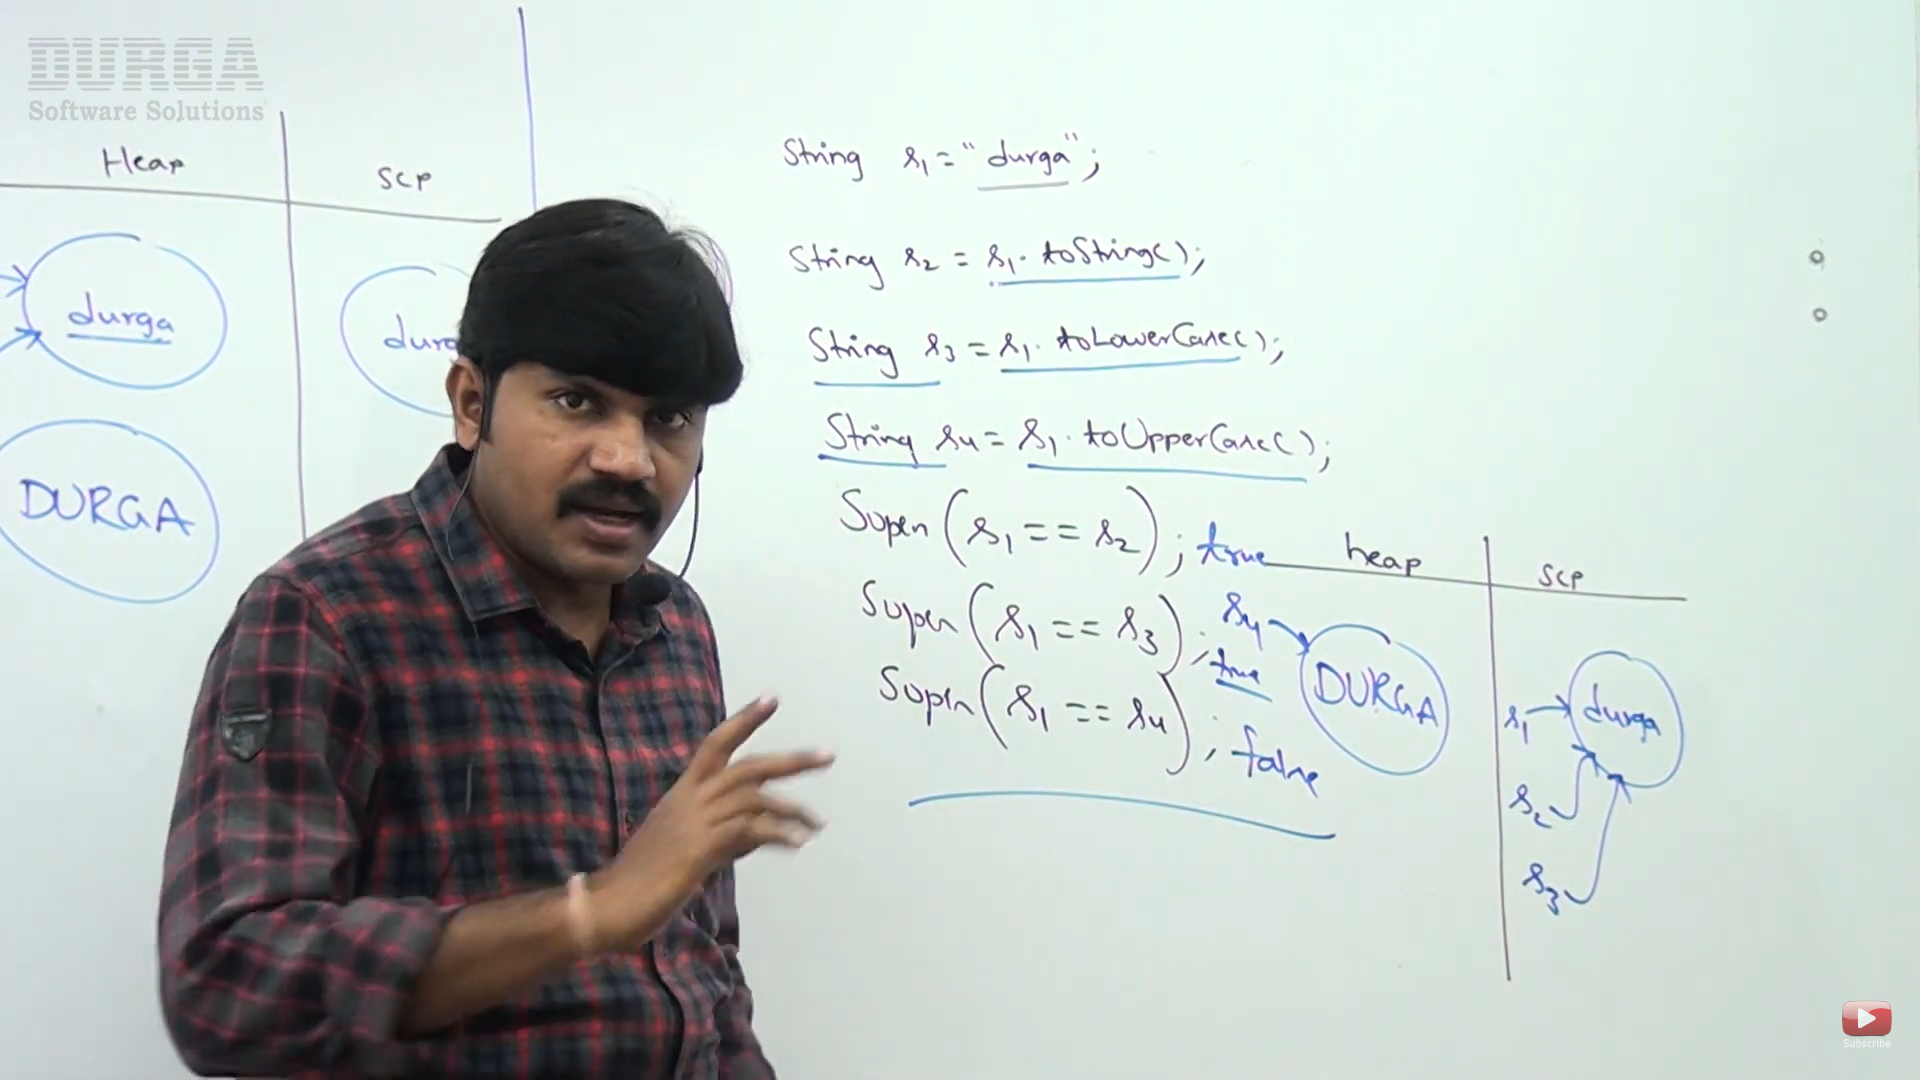 DURGA
Software Solutions
Heap
SCP
durga
DURGA
String s1 = "durga";
String s2 = s1.toString();
String s3 = s1.toLowerCase();
String s4 = s1.toUpperCase();
Sopln(s1 == s2); true
Sopln(s1 == s3); true
Sopln(s1 == s4); false
heap
SCP
s4
DURGA
s1
durga
s2
s3
Subscribe